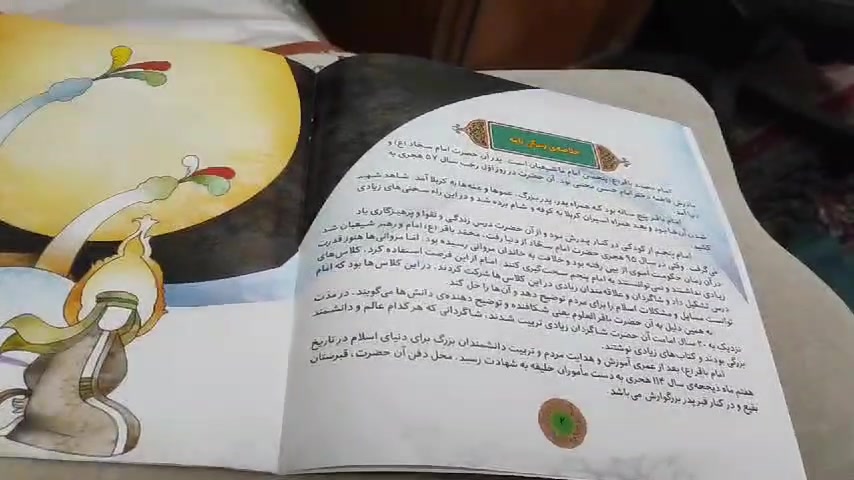 خلاصه‌ی زندگی نامه
حضرت امام محمد باقر(ع) پنجمین امام ما شیعیان است. پدر آن حضرت امام سجاد(ع) و
مادرش فاطمه دختر امام حسن بود. آن حضرت در روز اول رجب سال ۵۷ هجری به
دنیا آمد.
امام باقر پنج ساله بود که همراه پدر، پدربزرگ، عموها و عمه‌ها به کربلا آمد. شاهد شهید
بود و بعد همراه اسیران کربلا به کوفه و شام برده شد و در این راه سختی‌های زیادی
کشید.
امام پنجم از کودکی در کنار پدر بود و از آن حضرت درس زندگی و تقوا و پرهیزگاری یاد
می‌گرفت. وقتی در سال ۹۵ هجری حضرت امام سجاد از دنیا رفت، محمد باقر(ع) امام و رهبر شیعیان شد.
در آن زمان بنی‌اموی از بین رفته بود و خلافت به خاندان مروانی رسیده بود. اما مروانی‌ها هنوز قدرت
زیادی نداشتند و نمی‌توانستند به امام پنجم سخت‌گیری کنند. امام از این فرصت استفاده کرد و کلاس‌های
درس تشکیل داد و شاگردان و علاقمندان زیادی در این کلاس‌ها شرکت کردند. در این کلاس‌ها بود که امام
توانست مسایل و مشکلات اسلام را برای مردم توضیح دهد و آن‌ها را حل کند.
به همین دلیل به آن حضرت باقرالعلوم یعنی شکافنده و توضیح دهنده‌ی دانش‌ها هم می‌گویند. در مدت
نزدیک به ۲۰ سال امامت آن حضرت شاگردان زیادی تربیت شدند. شاگردانی که هر کدام عالم و دانشمند
بزرگی بودند و کتاب‌های زیادی نوشتند.
امام باقر(ع) بعد از عمری آموزش و هدایت مردم و تربیت دانشمندان بزرگ برای دنیای اسلام در تاریخ
هفتم ماه ذیحجه‌ی سال ۱۱۴ هجری به دست مأموران خلیفه به شهادت رسید. محل دفن آن حضرت، قبرستان
بقیع و در کنار قبر پدر بزرگوارش می‌باشد.
۲